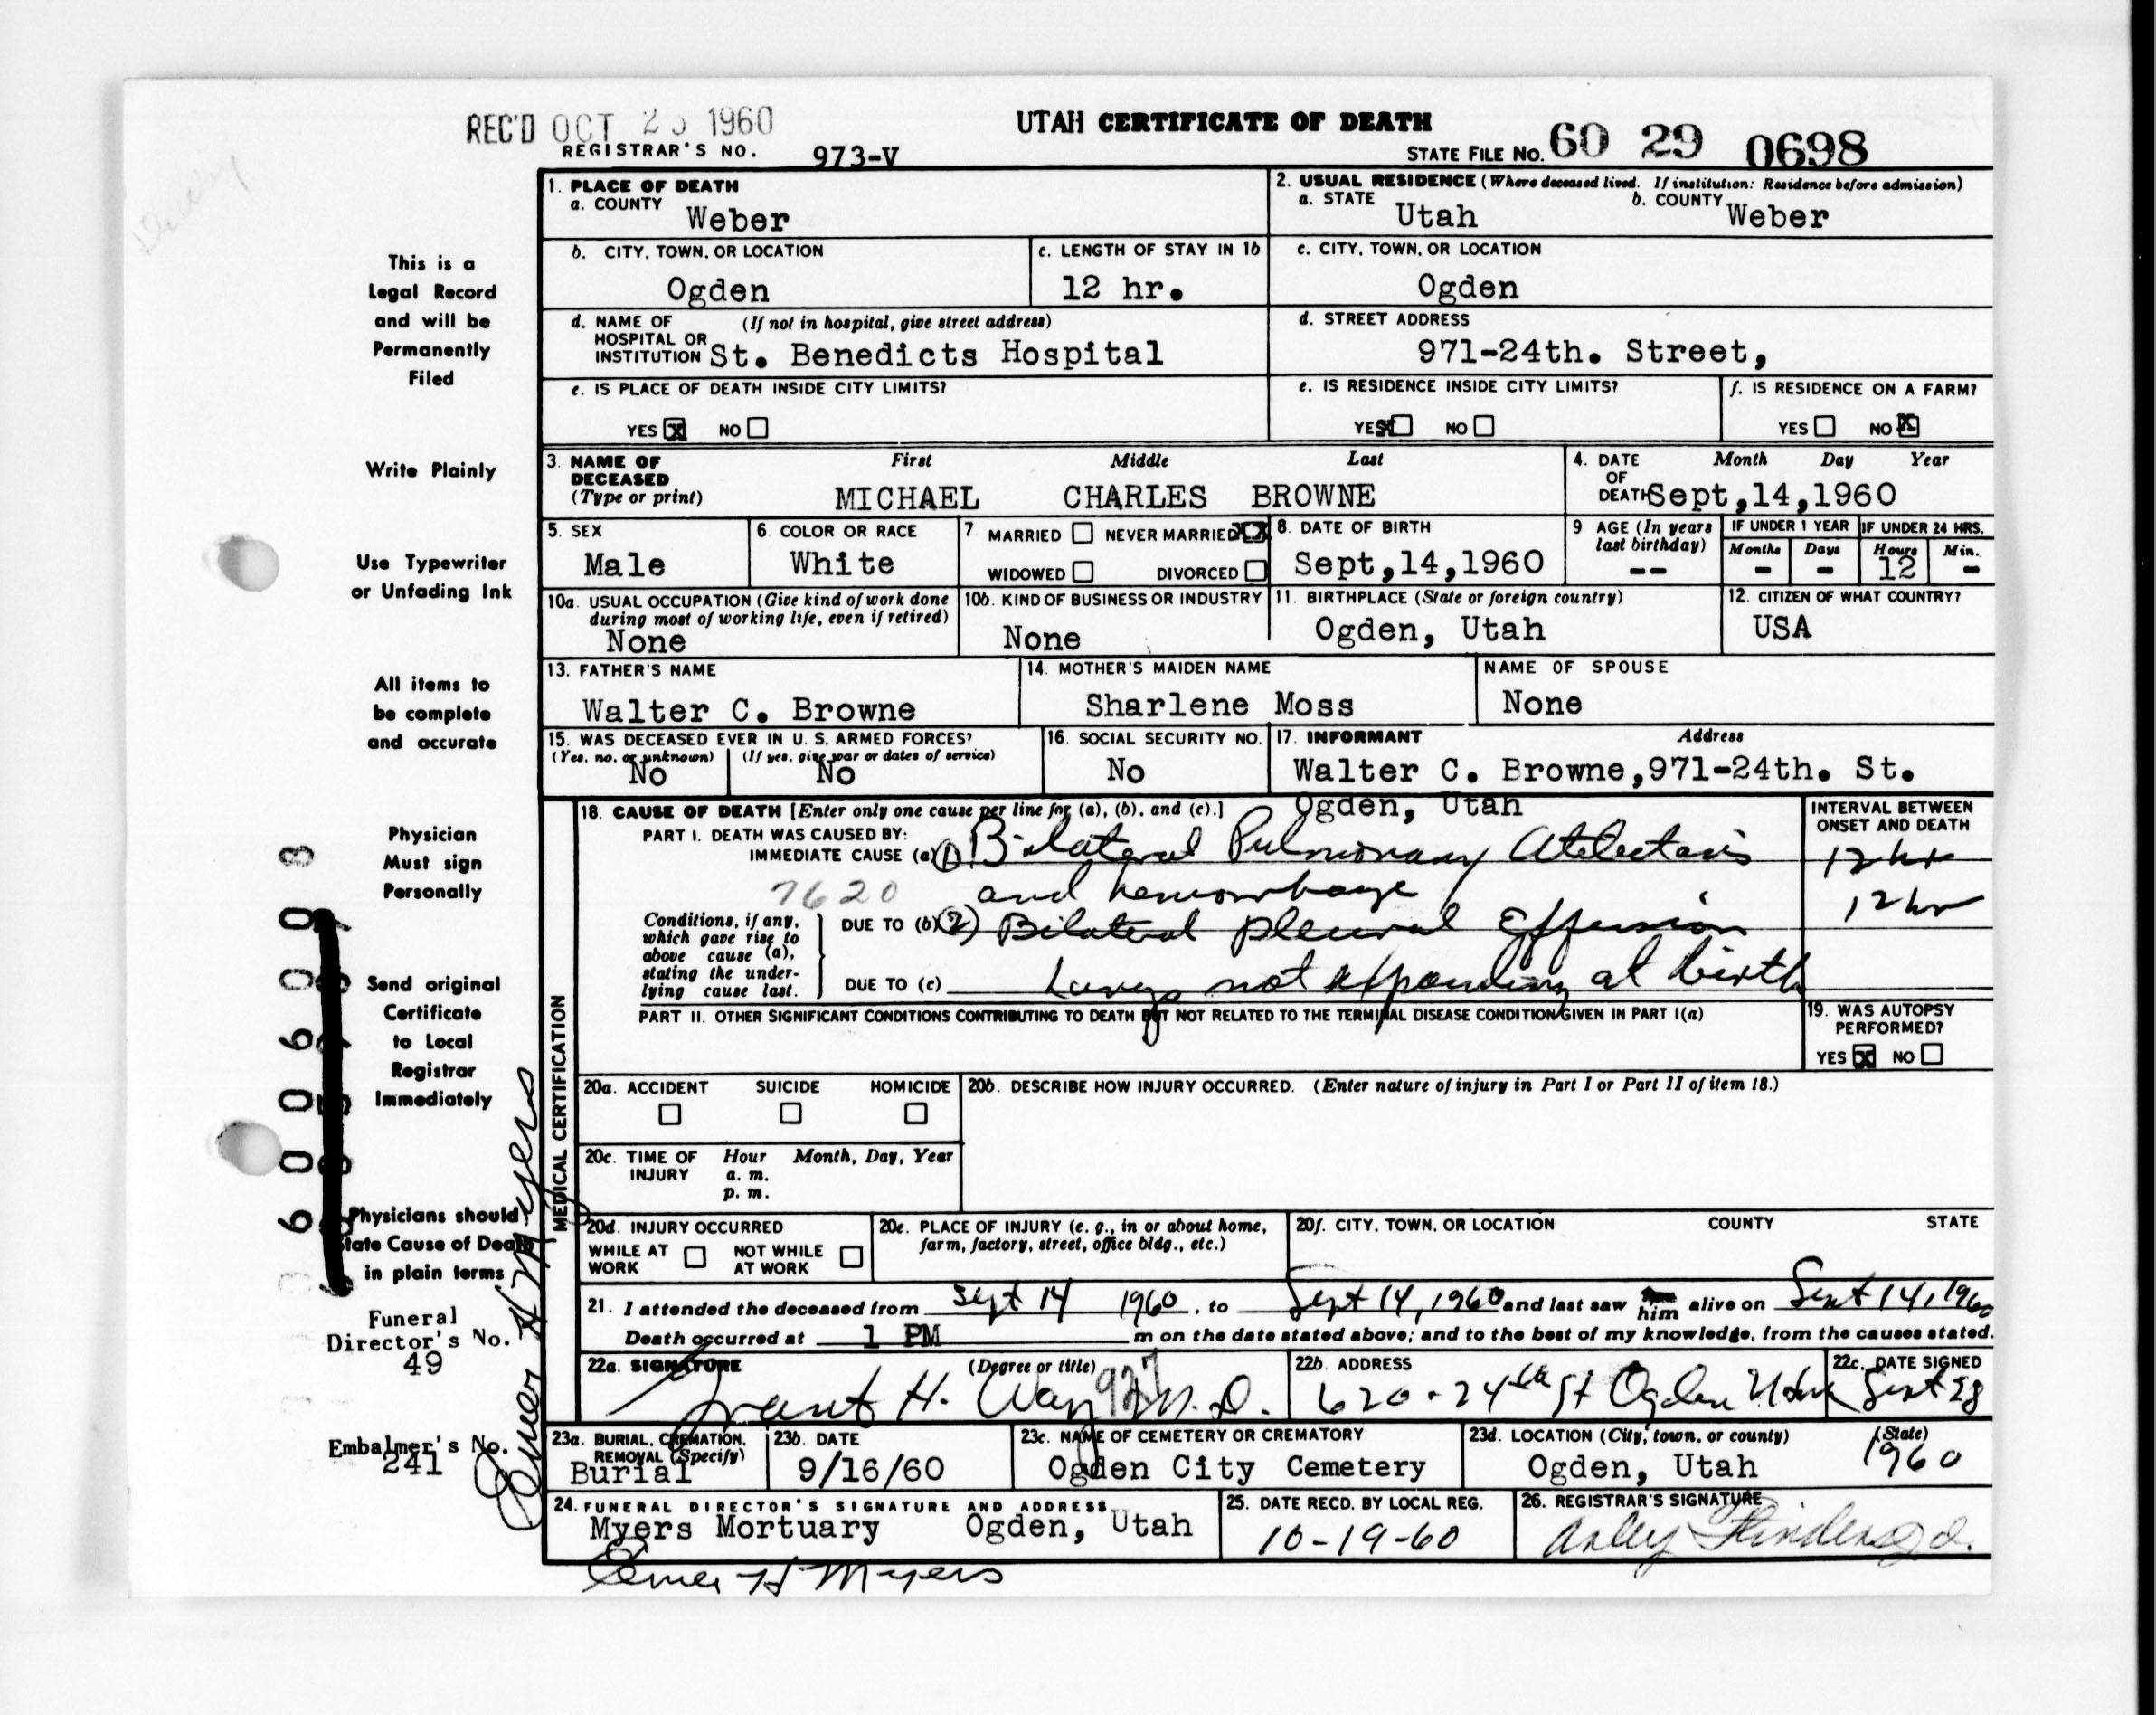 REC'D OCT 1960
UTAH CERTIFICATE OF DEATH
REGISTRAR'S NO. 973-V
STATE FILE NO. 60 29 0698
1. PLACE OF DEATH
a. COUNTY Weber
2. USUAL RESIDENCE (Where deceased lived. If institution: Residence before admission)
a. STATE Utah b. COUNTY Weber
b. CITY, TOWN, OR LOCATION Ogden
c. LENGTH OF STAY IN 1b 12 hr.
c. CITY, TOWN, OR LOCATION Ogden
d. NAME OF HOSPITAL OR INSTITUTION (If not in hospital, give street address) St. Benedicts Hospital
d. STREET ADDRESS 971-24th. Street,
e. IS PLACE OF DEATH INSIDE CITY LIMITS?
YES X NO
e. IS RESIDENCE INSIDE CITY LIMITS?
YES X NO
f. IS RESIDENCE ON A FARM?
YES NO X
3. NAME OF DECEASED (Type or print) First Middle Last
MICHAEL CHARLES BROWNE
4. DATE OF DEATH Month Day Year
Sept,14,1960
5. SEX Male
6 COLOR OR RACE White
7 MARRIED NEVER MARRIED XX
WIDOWED DIVORCED
8. DATE OF BIRTH Sept,14,1960
9 AGE (In years last birthday) --
IF UNDER 1 YEAR Months - Days -
IF UNDER 24 HRS. Hours 12 Min. -
10a. USUAL OCCUPATION (Give kind of work done during most of working life, even if retired) None
10b. KIND OF BUSINESS OR INDUSTRY None
11. BIRTHPLACE (State or foreign country) Ogden, Utah
12. CITIZEN OF WHAT COUNTRY? USA
13. FATHER'S NAME Walter C. Browne
14. MOTHER'S MAIDEN NAME Sharlene Moss
NAME OF SPOUSE None
15. WAS DECEASED EVER IN U. S. ARMED FORCES?
(Yes, no, or unknown) No (If yes, give war or dates of service) No
16. SOCIAL SECURITY NO. No
17. INFORMANT Address
Walter C. Browne,971-24th. St.
Ogden, Utah
MEDICAL CERTIFICATION
18. CAUSE OF DEATH [Enter only one cause per line for (a), (b), and (c).]
INTERVAL BETWEEN ONSET AND DEATH
PART I. DEATH WAS CAUSED BY:
IMMEDIATE CAUSE (a) (1) Bilateral Pulmonary Atelectasis 12 hr
7620 and hemorrhage 12 hr
Conditions, if any, which gave rise to above cause (a), stating the underlying cause last.
DUE TO (b) (2) Bilateral pleural Effusion
DUE TO (c) Lungs not expanding at birth
PART II. OTHER SIGNIFICANT CONDITIONS CONTRIBUTING TO DEATH BUT NOT RELATED TO THE TERMINAL DISEASE CONDITION GIVEN IN PART I(a)
19. WAS AUTOPSY PERFORMED?
YES X NO
20a. ACCIDENT SUICIDE HOMICIDE
20b. DESCRIBE HOW INJURY OCCURRED. (Enter nature of injury in Part I or Part II of item 18.)
20c. TIME OF INJURY Hour a. m. p. m. Month, Day, Year
20d. INJURY OCCURRED
WHILE AT WORK NOT WHILE AT WORK
20e. PLACE OF INJURY (e. g., in or about home, farm, factory, street, office bldg., etc.)
20f. CITY, TOWN, OR LOCATION COUNTY STATE
21. I attended the deceased from Sept 14 1960, to Sept 14, 1960 and last saw him alive on Sept 14, 1960
Death occurred at 1 PM m on the date stated above; and to the best of my knowledge, from the causes stated.
22a. SIGNATURE (Degree or title)
Grant H. Way M.D.
22b. ADDRESS 620-24th St Ogden Utah
22c. DATE SIGNED Sept 28 1960
23a. BURIAL, CREMATION, REMOVAL (Specify) Burial
23b. DATE 9/16/60
23c. NAME OF CEMETERY OR CREMATORY Ogden City Cemetery
23d. LOCATION (City, town, or county) (State) Ogden, Utah
24. FUNERAL DIRECTOR'S SIGNATURE AND ADDRESS
Myers Mortuary Ogden, Utah
Elmer H Myers
25. DATE RECD. BY LOCAL REG. 10-19-60
26. REGISTRAR'S SIGNATURE
This is a
Legal Record
and will be
Permanently
Filed
Write Plainly
Use Typewriter
or Unfading Ink
All items to
be complete
and accurate
Physician
Must sign
Personally
Send original
Certificate
to Local
Registrar
Immediately
Physicians should
State Cause of Death
in plain terms
Funeral
Director's No.
49
Embalmer's No.
241
Elmer H Myers